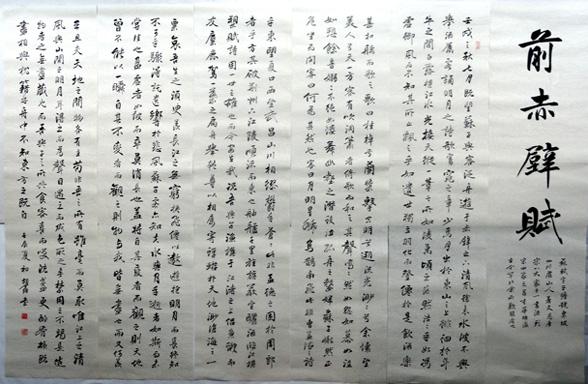 前赤壁賦
壬戌之秋七月既望蘇子與客泛舟遊于赤壁之下清風徐來水波不興
舉酒屬客誦明月之詩歌窈窕之章少焉月出於東山之上徘徊於斗
牛之間白露橫江水光接天縱一葦之所如凌萬頃之茫然浩浩乎如馮
虛御風而不知其所止飄飄乎如遺世獨立羽化而登僊於是飲酒樂
甚扣舷而歌之歌曰桂棹兮蘭槳擊空明兮遡流光渺渺兮余懷望
美人兮天一方客有吹洞簫者倚歌而和之其聲嗚嗚然如怨如慕如泣
如訴餘音嫋嫋不絕如縷舞幽壑之潛蛟泣孤舟之嫠婦蘇子愀然正襟
危坐而問客曰何為其然也客曰月明星稀烏鵲南飛此非曹孟德之詩
乎東望夏口西望武昌山川相繆鬱乎蒼蒼此非孟德之困於周郎
者乎方其破荊州下江陵順流而東也舳艫千里旌旗蔽空釃酒臨江橫
槊賦詩固一世之雄也而今安在哉況吾與子漁樵于江渚之上侶魚蝦而
友麋鹿駕一葉之扁舟舉匏尊以相屬寄蜉蝣於天地渺滄海之一
粟哀吾生之須臾羨長江之無窮挾飛僊以遨遊抱明月而長終知
不可乎驟得託遺響於悲風蘇子曰客亦知夫水與月乎逝者如斯而未
嘗往也盈虛者如彼而卒莫消長也蓋將自其變者而觀之則天地
曾不能以一瞬自其不變者而觀之則物與我皆無盡也而又何羨
乎且夫天地之間物各有主苟非吾之所有雖一毫而莫取惟江上之清
風與山間之明月耳得之而為聲目遇之而成色取之無禁用之不竭是造
物者之無盡藏也而吾與子之所共食客喜而笑洗盞更酌肴核既
盡相與枕藉乎舟中不知東方之既白